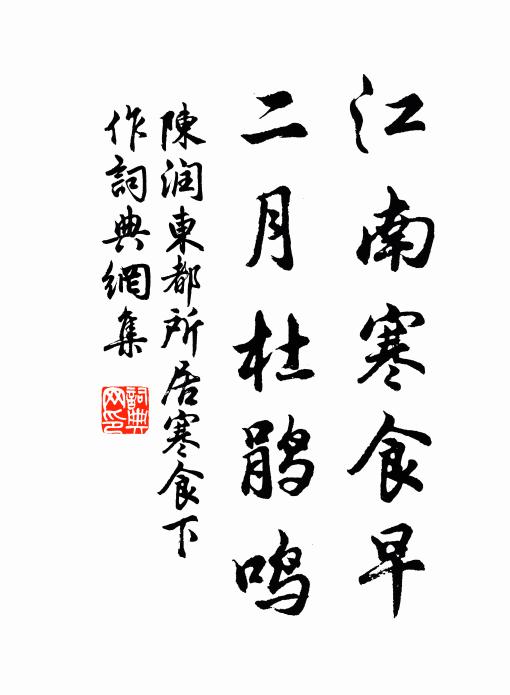 江南寒食早
二月杜鹃鸣
陳润東都所居寒食下
作詞典網集
詞典
网印